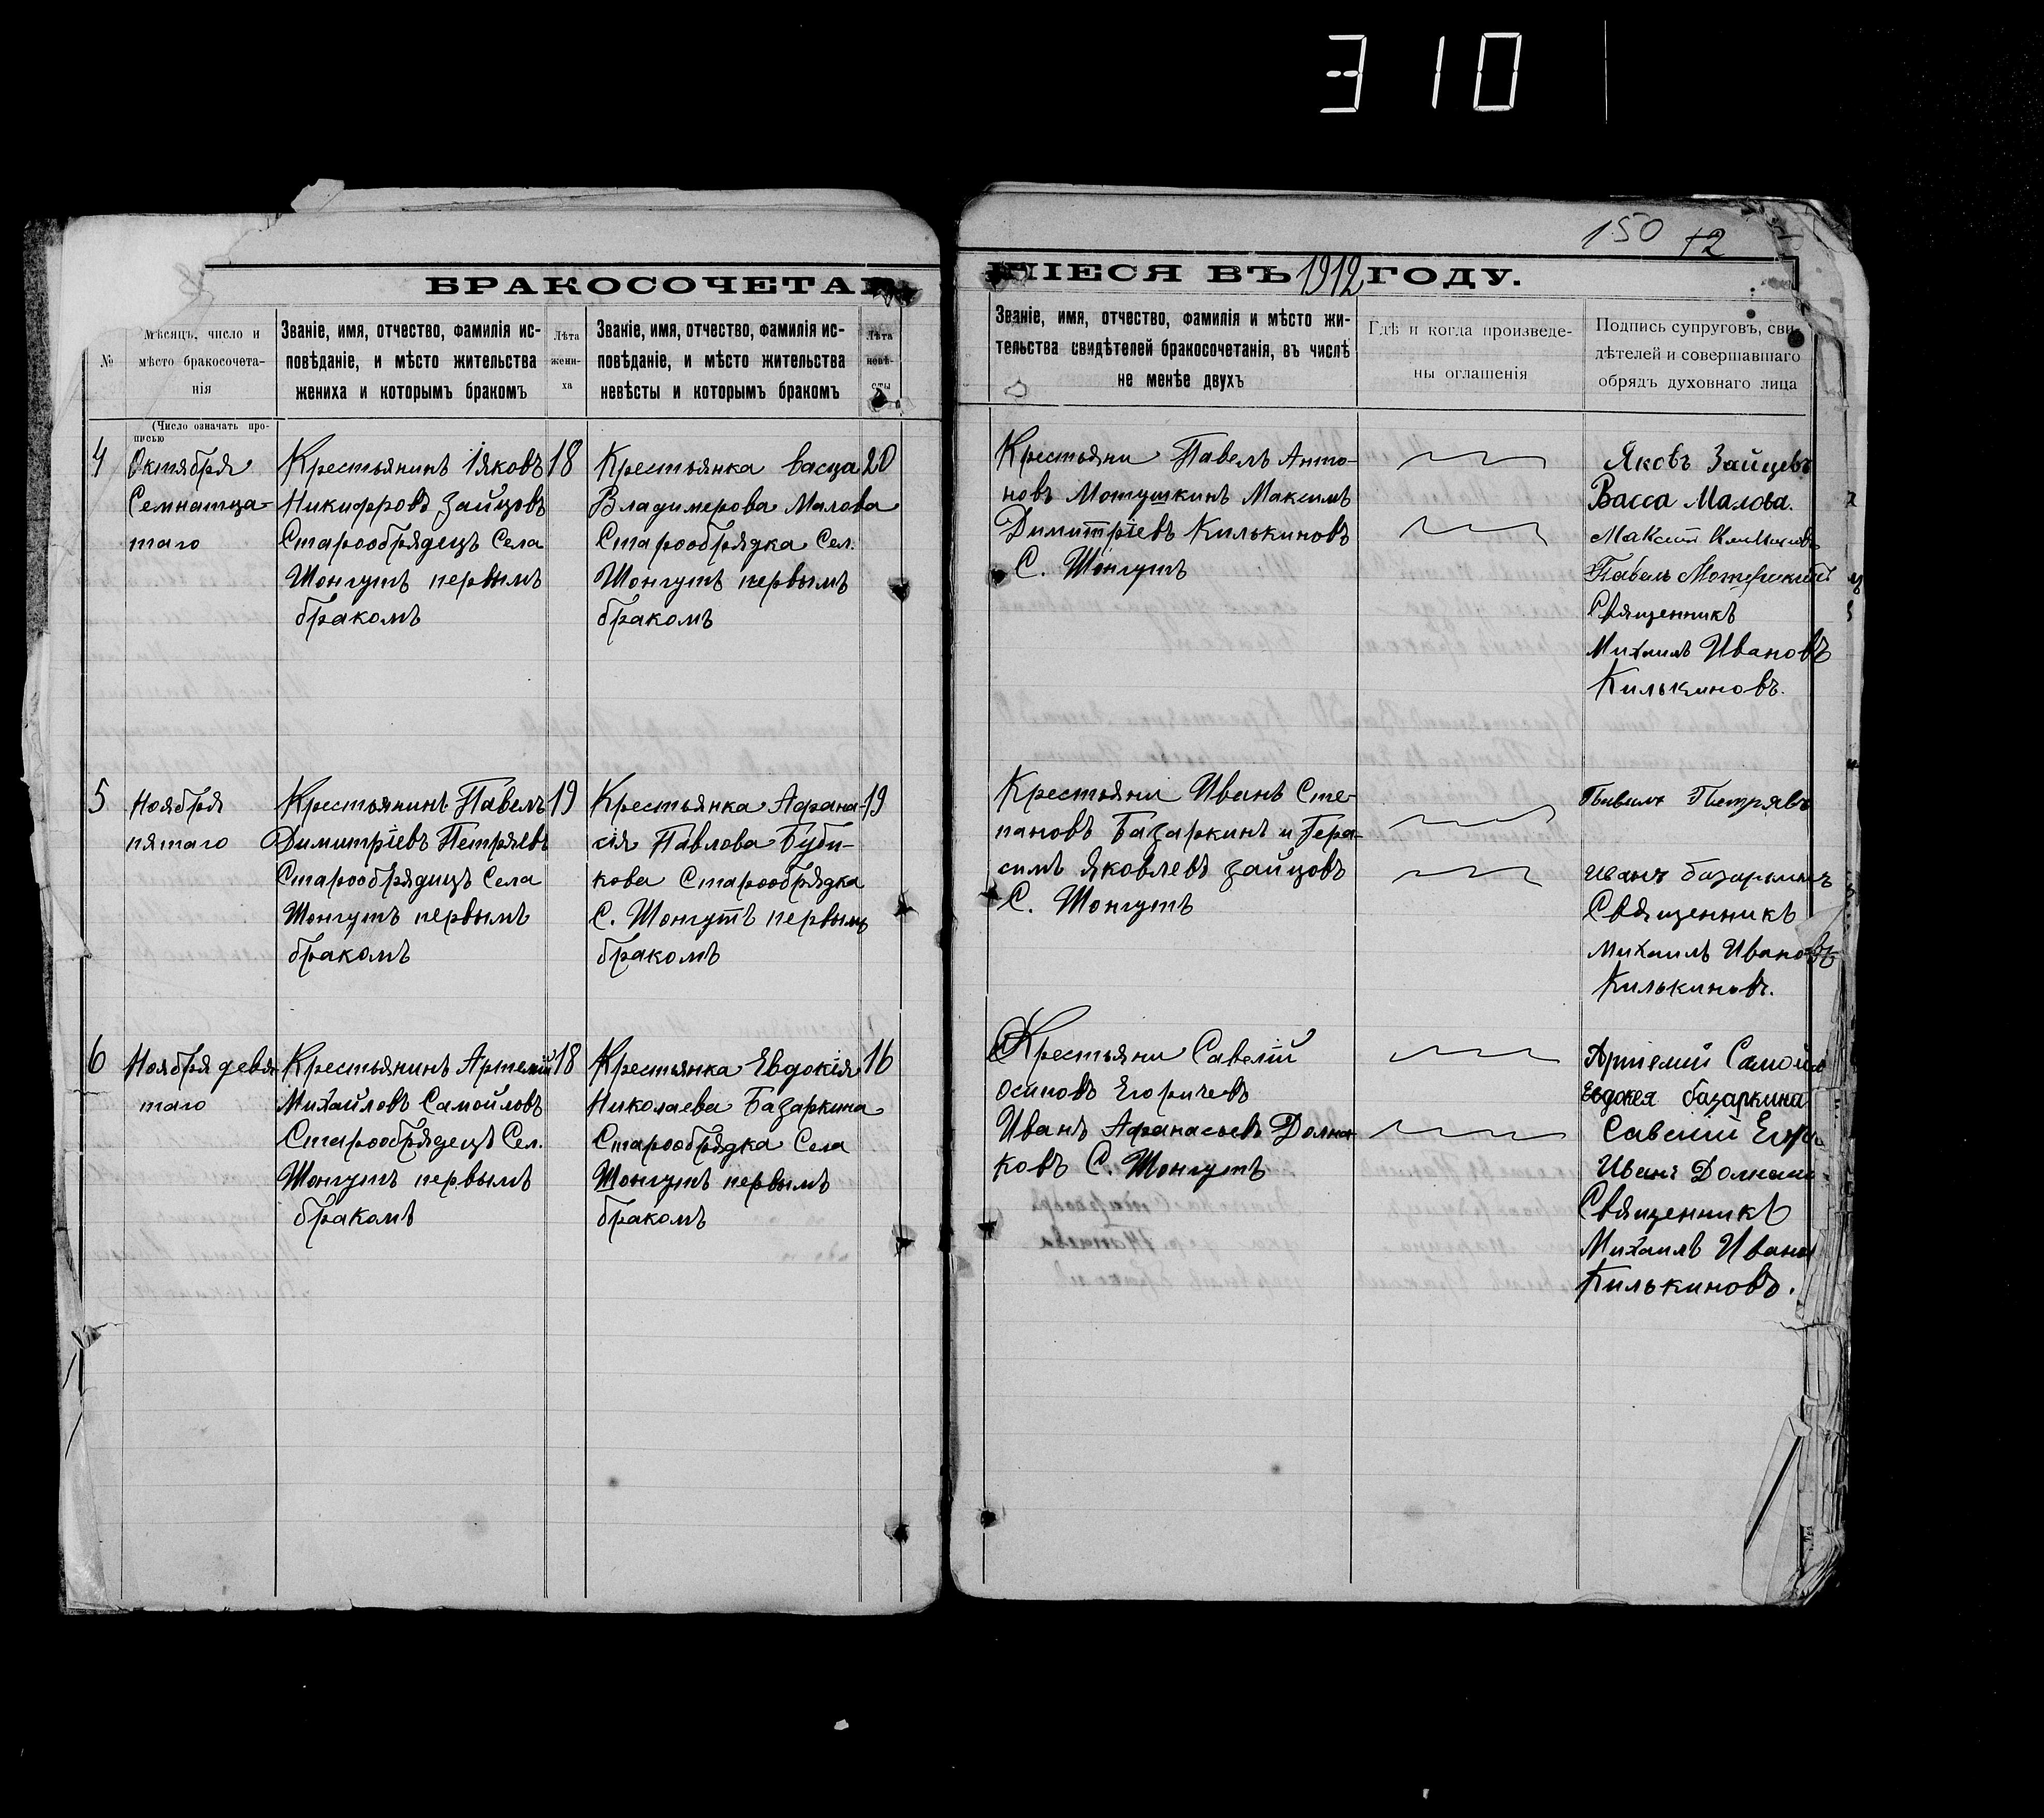 310
150 +2
БРАКОСОЧЕТАВШІЕСЯ ВЪ 1912 ГОДУ.
№
Мѣсяцъ, число и
мѣсто бракосочета-
нія
Званіе, имя, отчество, фамилія ис-
повѣданіе, и мѣсто жительства
жениха и которымъ бракомъ
Лѣта
жени-
ха
Званіе, имя, отчество, фамилія ис-
повѣданіе, и мѣсто жительства
невѣсты и которымъ бракомъ
Лѣта
невѣ-
сты
Званіе, имя, отчество, фамилія и мѣсто жи-
тельства свидѣтелей бракосочетанія, въ числѣ
не менѣе двухъ
Гдѣ и когда произведе-
ны оглашенія
Подпись супруговъ, сви-
дѣтелей и совершавшаго
обрядъ духовнаго лица
(Число означать про-
писью
4
Октября
Семнатца-
таго
Крестьянинъ Іяковъ
Никифровъ Зайцовъ
Старообрядецъ Села
Шонгутъ первымъ
бракомъ
18
Крестьянка васца
Владимерова Малова
Старообрядка Сел.
Шонгутъ первымъ
бракомъ
20
Крестьяни Павелъ Анто-
новъ Мотушкинъ Максимъ
Димитріевъ Килькиновъ
С. Шонгутъ
Яковъ Зайцевъ
Васса Малова.
Максим
Павелъ
Священникъ
Михаилъ Ивановъ
Килькиновъ.
5
Ноября
пятаго
Крестьянинъ Павелъ
Димитріевъ Петряевъ
Старообрядицъ Села
Шонгутъ первымъ
бракомъ
19
Крестьянка Афана-
сія Павлова Буби-
кова Старообрядка
С. Шонгутъ первымъ
бракомъ
19
Крестьяни Иванъ Сте-
пановъ Базаркинъ и Гера-
симъ Яковлевъ Зайцовъ
С. Шонгутъ
Павилъ Петрявъ
Иванъ базаркинъ
Священникъ
Михаилъ Ивановъ
Килькиновъ.
6
Ноября девя
таго
Крестьянинъ Артемій
Михайловъ Самойловъ
Старообрядецъ Сел.
Шонгутъ первымъ
бракомъ
18
Крестьянка Евдокія
Николаева Базаркина
Старообрядка Села
Шонгутъ первымъ
бракомъ
16
Крестьяни Савелій
осиповъ Егоричевъ
Иванъ Афанасьевъ Долма
ковъ С. Шонгутъ
Артемий Самойло
Евдокея базаркина
Савелий
Иванъ
Священникъ
Михаилъ Ивано
Килькиновъ.